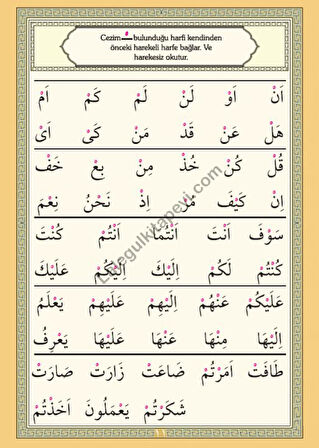 Cezim ْ bulunduğu harfi kendinden
önceki harekeli harfe bağlar. Ve
harekesiz okutur.
اَنْ اَوْ لَنْ لَمْ كَمْ اَمْ
هَلْ عَنْ قَدْ مَنْ كَىْ اَىْ
قُلْ كُنْ خُذْ مِنْ بِعْ خَفْ
اِنْ كَيْفَ مُرْ اِذْ نَحْنُ نِعْمَ
سَوْفَ اَنْتَ اَنْتُمَا اَنْتُمْ كُنْتَ
كُنْتُمْ لَكُمْ اِلَيْكَ اِلَيْكُمْ عَلَيْكَ
عَلَيْكُمْ عَنْهُمْ اِلَيْهِمْ عَلَيْهِمْ يَعْلَمُ
اِلَيْهَا مِنْهَا عَنْهَا عَلَيْهَا يَعْرِفُ
طَافَتْ اَمَرْتُمْ ضَاعَتْ زَارَتْ صَارَتْ
شَكَرْتُمْ يَعْمَلُونَ اَخَذْتُمْ